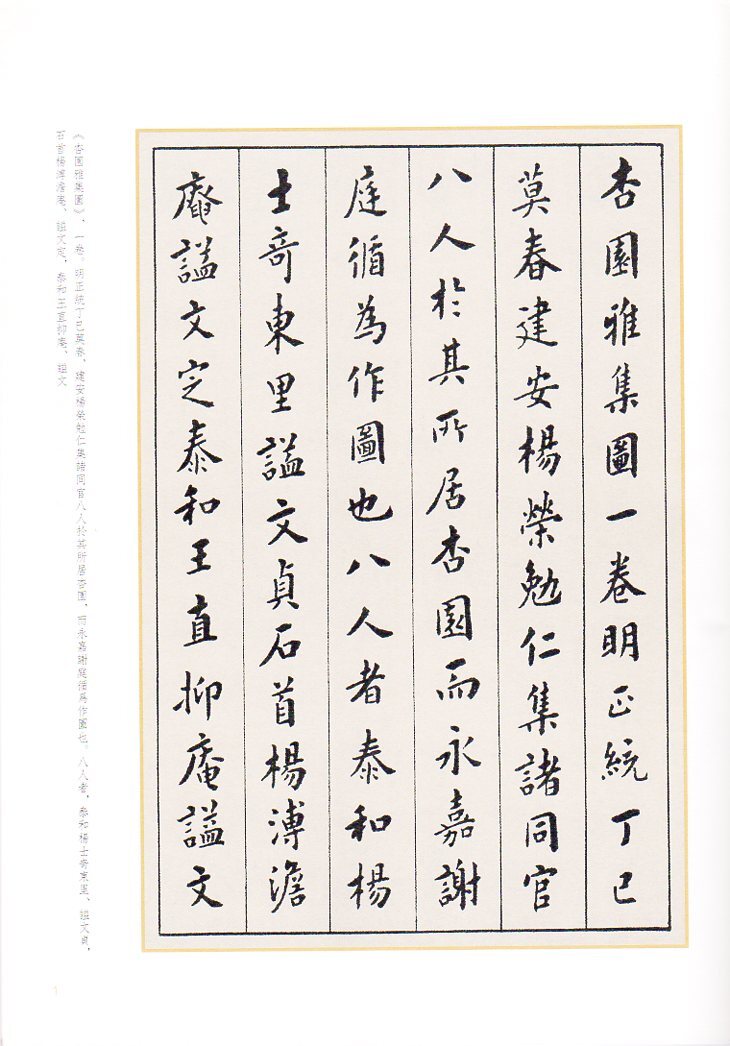 杏園雅集圖一卷明正統丁巳
莫春建安楊榮勉仁集諸同官
八人於其所居杏園而永嘉謝
庭循為作圖也八人者泰和楊
士奇東里謚文貞石首楊溥澹
庵謚文定泰和王直抑庵謚文
《杏園雅集圖》，一卷。明正統丁巳莫春，建安楊榮勉仁集諸同官八人於其所居杏園，而永嘉謝庭循爲作圖也。八人者，泰和楊士奇東里，謚文貞，
石首楊溥澹庵，謚文定，泰和王直抑庵，謚文
1